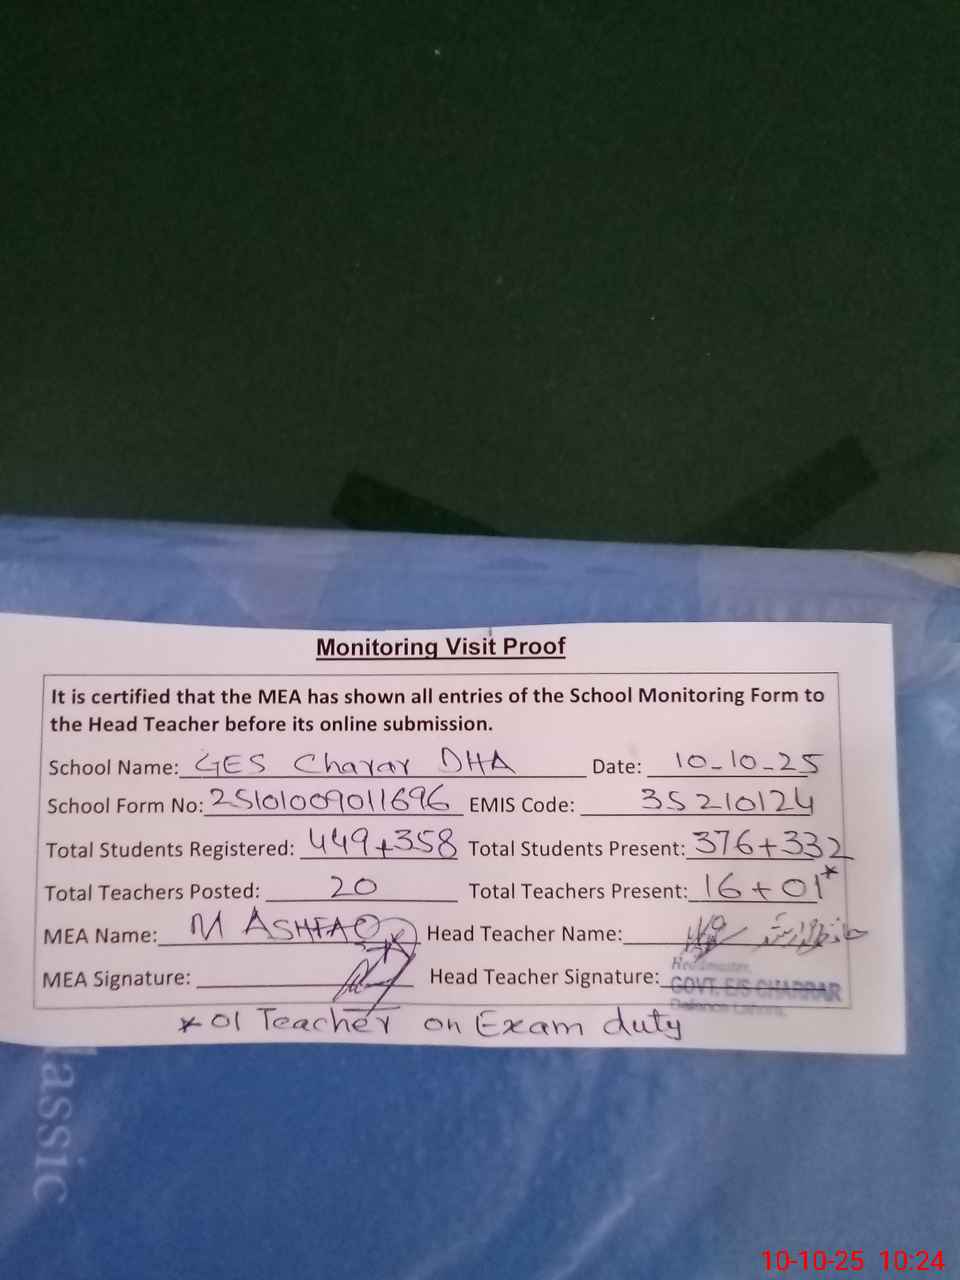 Monitoring Visit Proof
It is certified that the MEA has shown all entries of the School Monitoring Form to
the Head Teacher before its online submission.
School Name: GES Charar DHA Date: 10-10-25
School Form No: 25101009011696 EMIS Code: 35210124
Total Students Registered: 449+358 Total Students Present: 376+332
Total Teachers Posted: 20 Total Teachers Present: 16+01*
MEA Name: M ASHFAQ Head Teacher Name:
MEA Signature: Head Teacher Signature:
Headmaster,
GOVT. E/S CHARRAR
Defence Lahore.
* 01 Teacher on Exam duty
assic
10-10-25 10:24